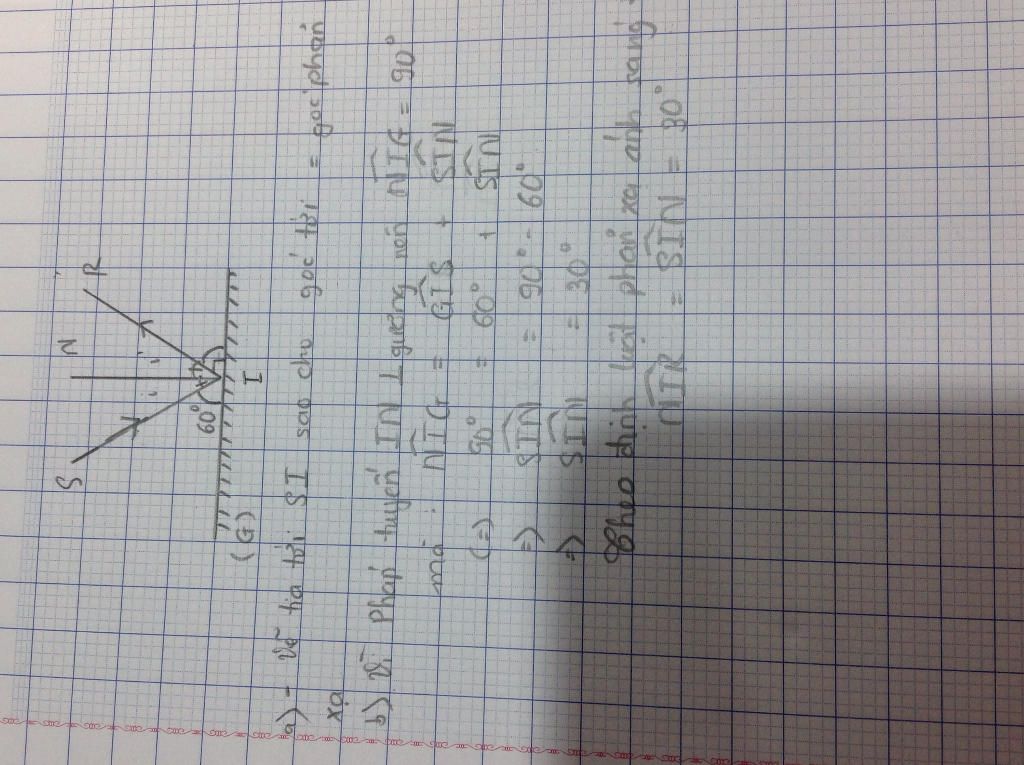 S N R
60° i i'
(G) I
a) - Vẽ tia tới SI sao cho góc tới = góc phản
xạ
b) Vì Pháp tuyến IN ⊥ gương nên NIG = 90°
mà : NIG = GIS + SIN
(=) 90° = 60° + SIN
=) SIN = 90° - 60°
=) SIN = 30°
Theo định luật phản xạ ánh sáng
NIR = SIN = 30°